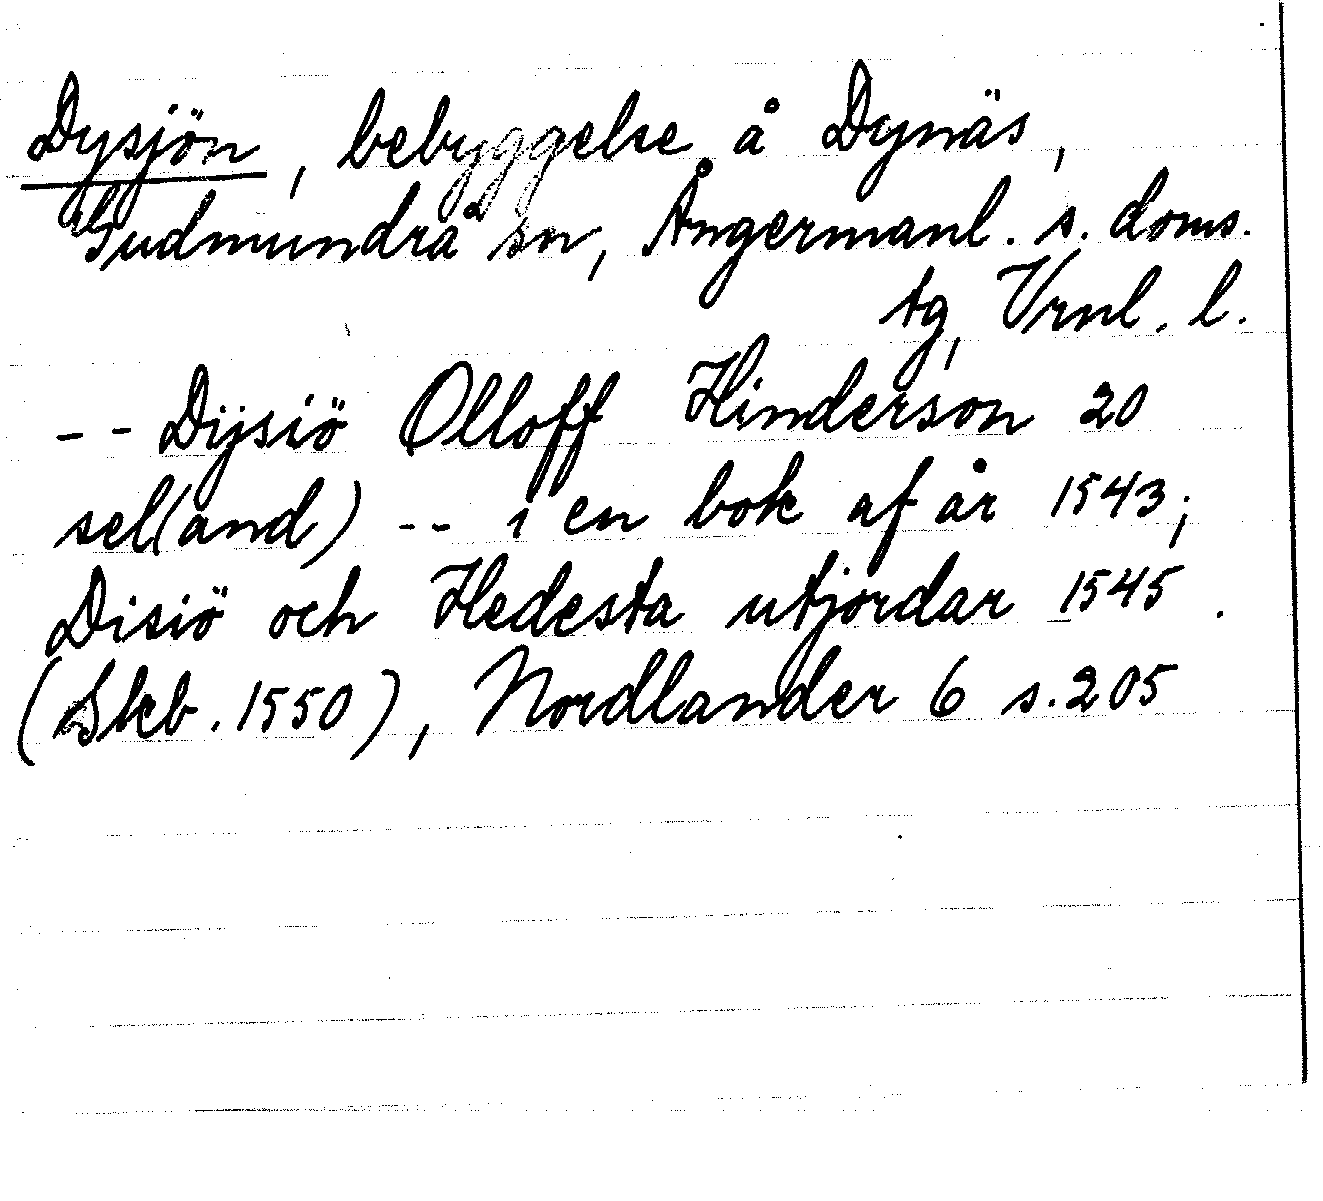 Dysjön, bebyggelse å Dynäs,
Gudmundrå sn, Ångermanl. s. doms.
tg, Vrnl. l.
-- Dÿsiö Olloff Hinderson 20
sel(and) -- i en bok af år 1543;
Disiö och Hedesta utjordar 1545.
(Skb. 1550), Nordlander 6 s. 205